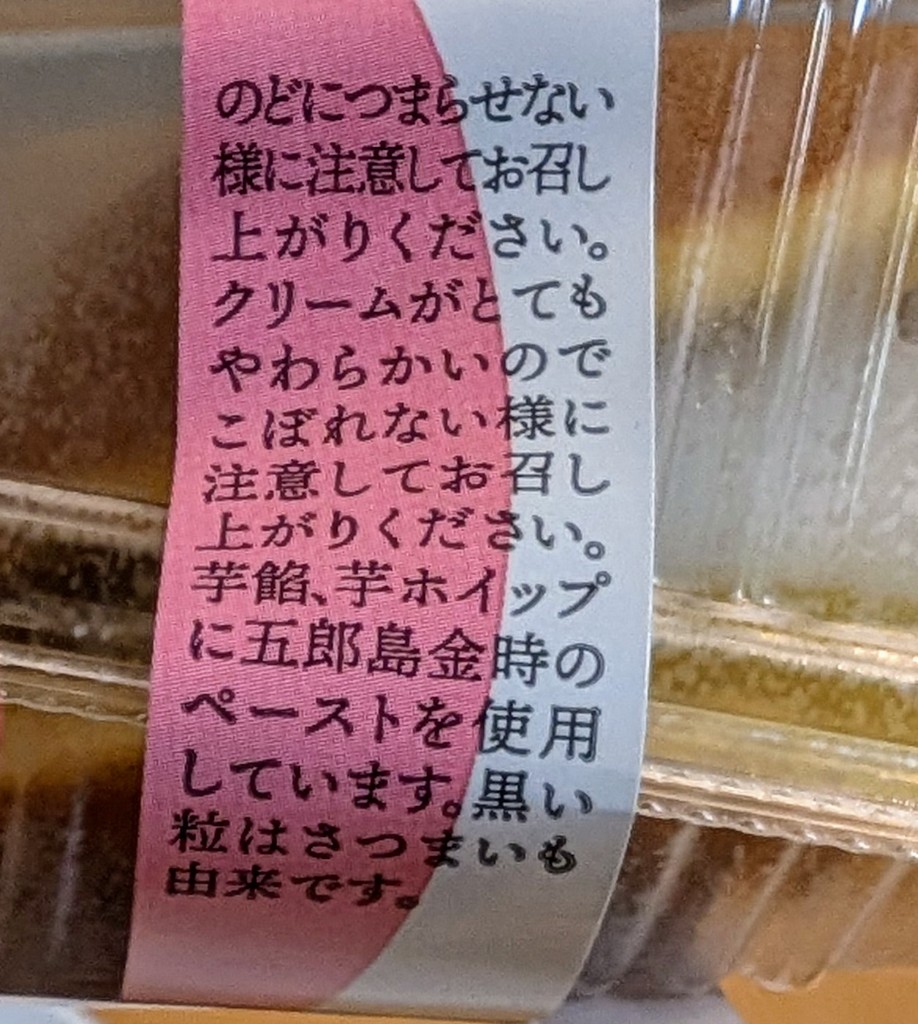 のどにつまらせない
様に注意してお召し
上がりください。
クリームがとても
やわらかいので
こぼれない様に
注意してお召し
上がりください。
芋餡、芋ホイップ
に五郎島金時の
ペーストを使用
しています。黒い
粒はさつまいも
由来です。